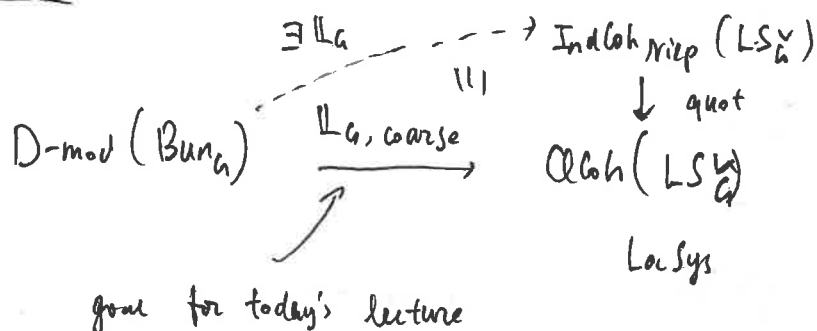 ∃ 𝕃_G IndCoh_Nilp (LS_Ǧ)
\\\
↓ quot
D-mod (Bun_G) 𝕃_{G, coarse} → QCoh (LS_Ǧ)
LocSys
goal for today's lecture